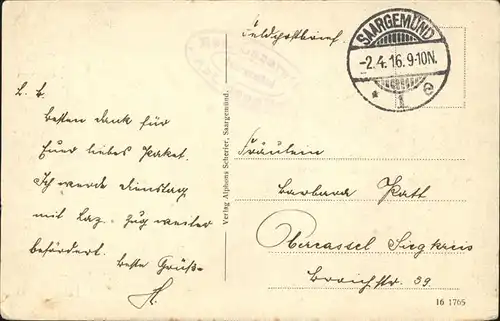 Feldpostbrief.
SAARGEMÜND
-2.4.16.9-10N.
* 1 e
L. E.
Besten Dank für
Euer liebes Paket.
Ich werde Dienstag
mit Laz.-Zug weiter
befördert.
Beste Grüße
H.
Verlag Alphons Scherier, Saargemünd.
Fräulein
Barbara Patt
Obercassel Siegkreis
Broichstr. 39.
16 1765